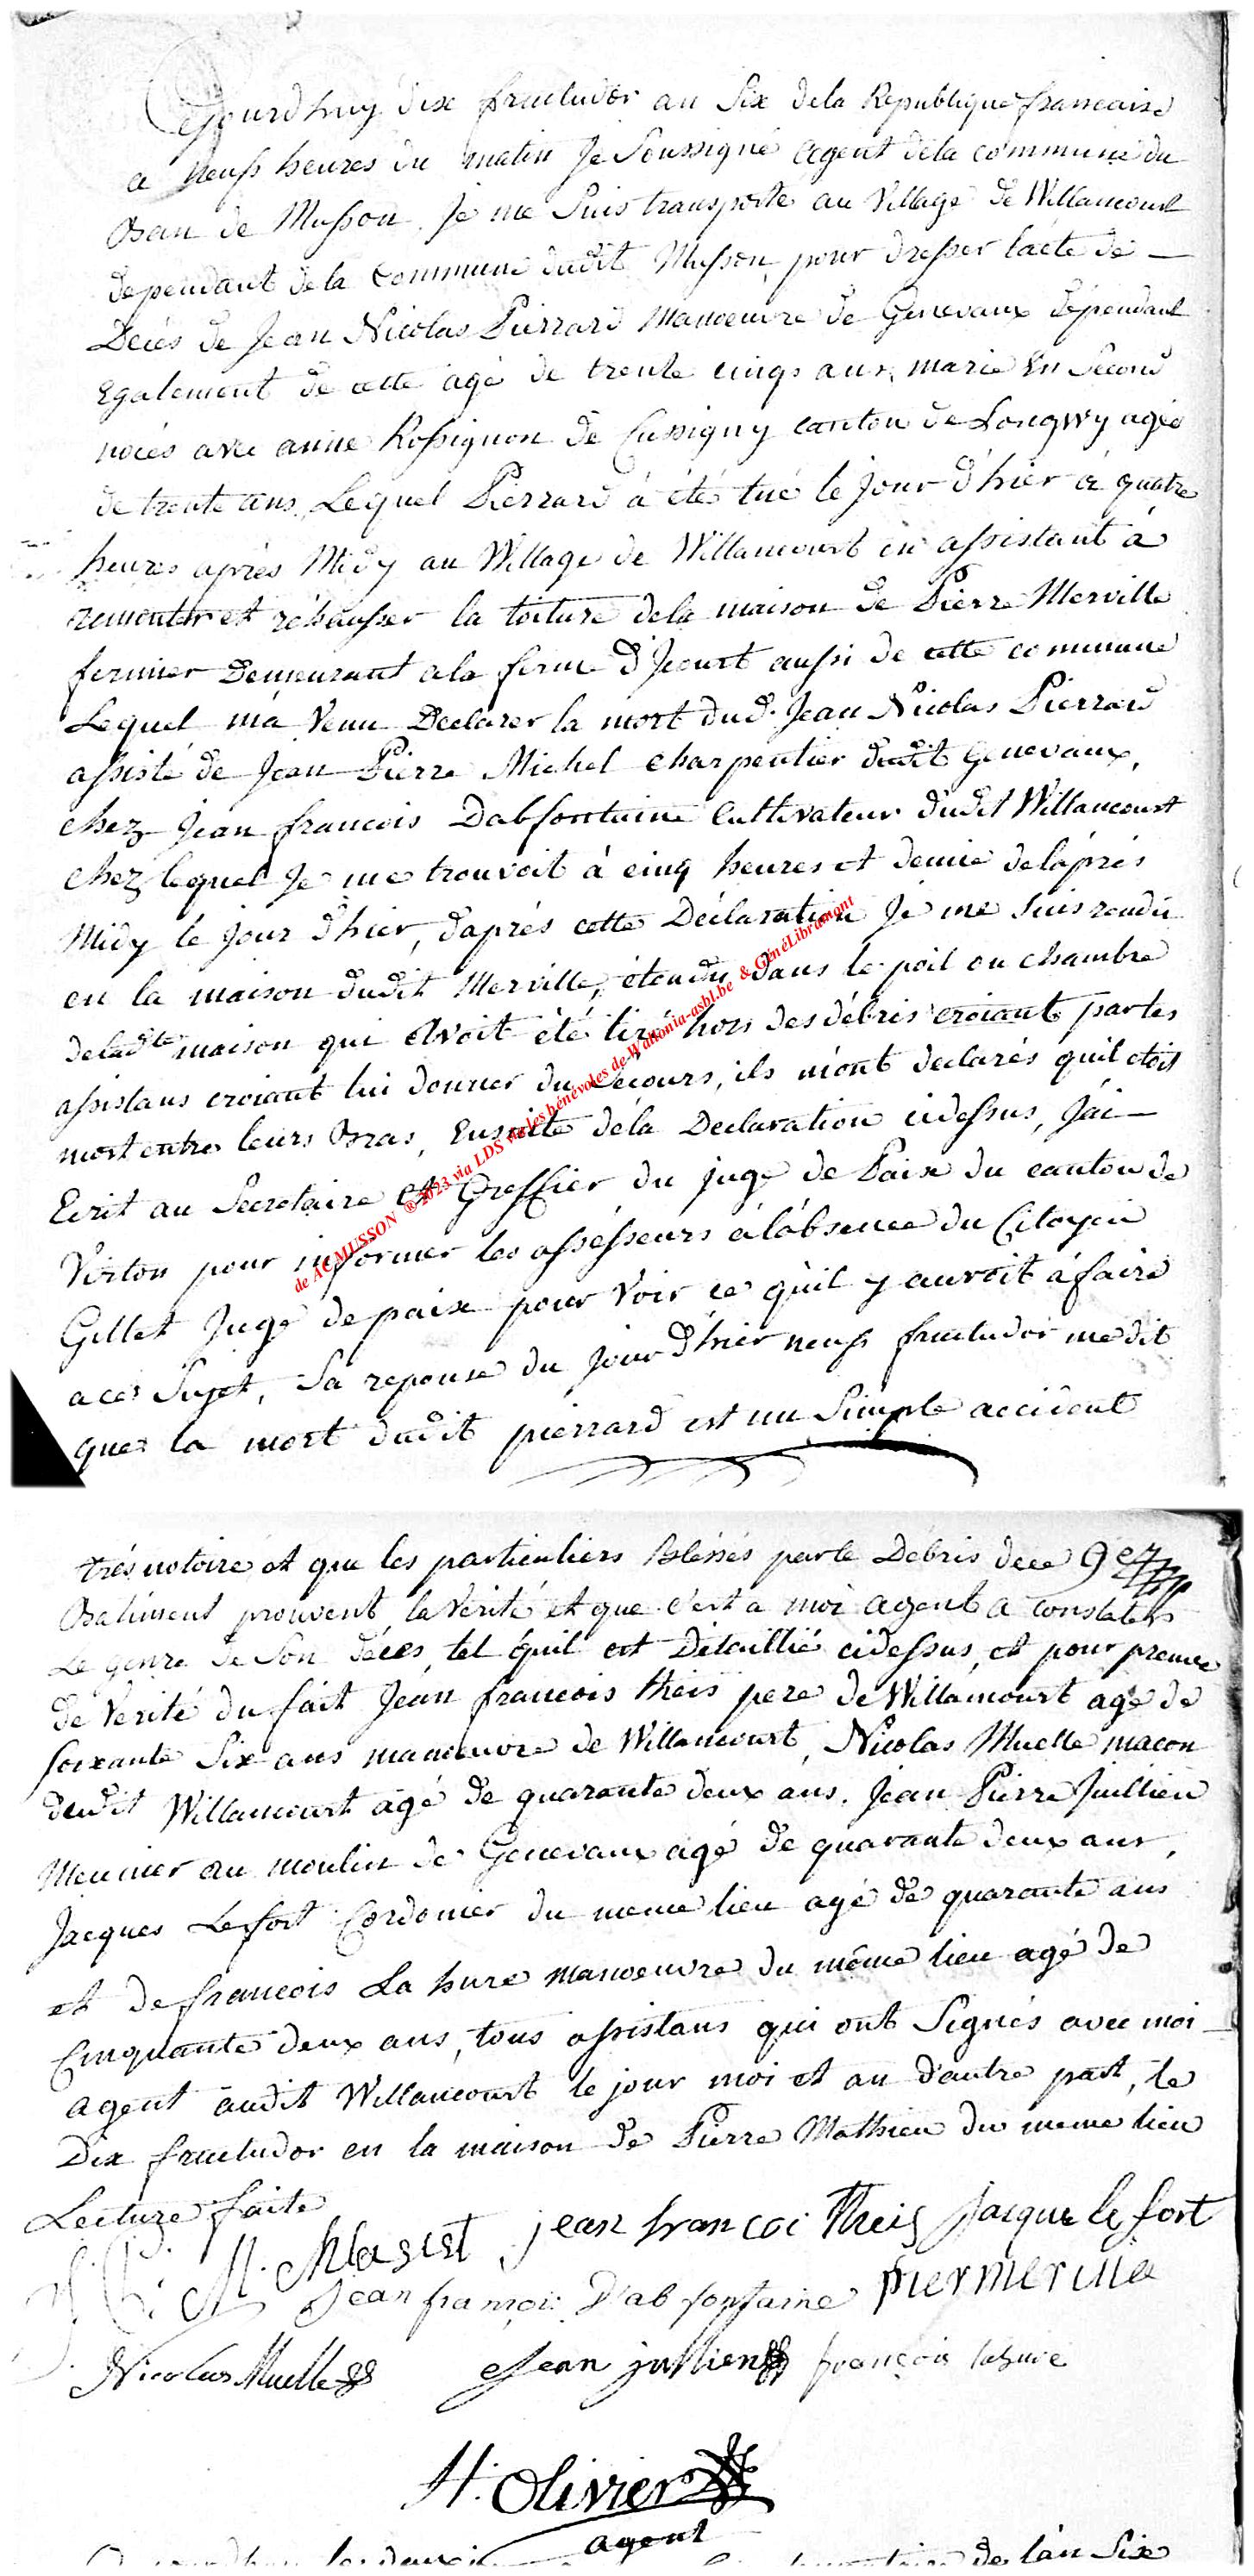 Cejourd'huy dix fructudor an Six dela Republique francaise
a neuf heures du matin Je Soussigné agent dela commune du
Ban de Musson, Je me Suis transporté au Village de Willancourt
dependant dela Commune dudit Musson, pour dresser lacte de —
Décés de Jean Nicolas Pierrard Manoeuvre de Genevaux dépendant
Egalement de cette agé de trente cinqs ans, marié En Second
noces avec anne Rossignon de Cussigny canton de Longwy agée
de trente ans, Lequel Pierrard à été tué le Jour d'hier a quatre
heures aprés Midy au Village de Willancourt en assistant à
remonter et réhausser la toiture dela maison de Pierre Merville
fermier Demeurant a la ferme d'Jcourt aussi de cette commune
Lequel m'a Venu Declarer la mort dud. Jean Nicolas Pierrard
assisté de Jean Pierre Michel charpentier dudit Genevaux,
chez Jean francois Dabfontaine Cultivateur dudit Willancourt
chez lequel Je me trouvoit à cinq heures et demie delaprés
Midy le jour d'hier, d'aprés cette Déclaration Je me Suis rendu
en la maison dudit Merville, étendu dans le poil ou chambre
deladte maison qui Avoit été tiré hors des débris croiant partes
assistans croiant lui donner du Secours, ils m'ont declarés qu'il etoit
mort entre leurs Bras, Ensuite déla Declaration cidessus, J'ai —
Ecrit au Secretaire et Greffier du juge de Paix du canton de
Virton pour informer les asséssseurs à l'absence du Citoyen
Gillet Juge de paix pour Voir ce qu'il y auroit à faire
a ces Sujet, Sa reponse du jour d'hier neuf fructudor me dit
que la mort dudit pierrard est un Simple accident
de AC MUSSON ® 2023 via LDS via les bénévoles de Wallonia-asbl.be & GénéLibramont
trés notoire et que les particuliers Blessés par le Débris dece
Batiment prouvent la Verité et que c'est a moi agent a constater
Le genre de Son décés, tel qu'il est Détaillié cidessus, et pour preuve
de Verité du fait Jean francois theis pere de Willancourt agé de
soixante Six ans manoeuvre de Willancourt, Nicolas Muelle macon
dudit Willancourt agé de quarante deux ans, Jean Pierre Juillien
Meunier au moulin de Genevaux agé de quarante deux ans,
Jacques Lefort Cordonier du meme lieu agé de quarante ans
et de francois La hure manoeuvre du même lieu agé de
Cinquante deux ans, tous assistans qui ont Signés avec moi
agent audit Willancourt le jour moi et an d'autre part, le
Dix fructudor en la maison de Pierre Mathieu du meme lieu
Lecture faite
jean francoi Theis Jacque le fort
Jean françois D'abfontaine pier merville
Nicolas Muelle Jean jullien françois lahure
H. Olivier
agent
de l'an Six